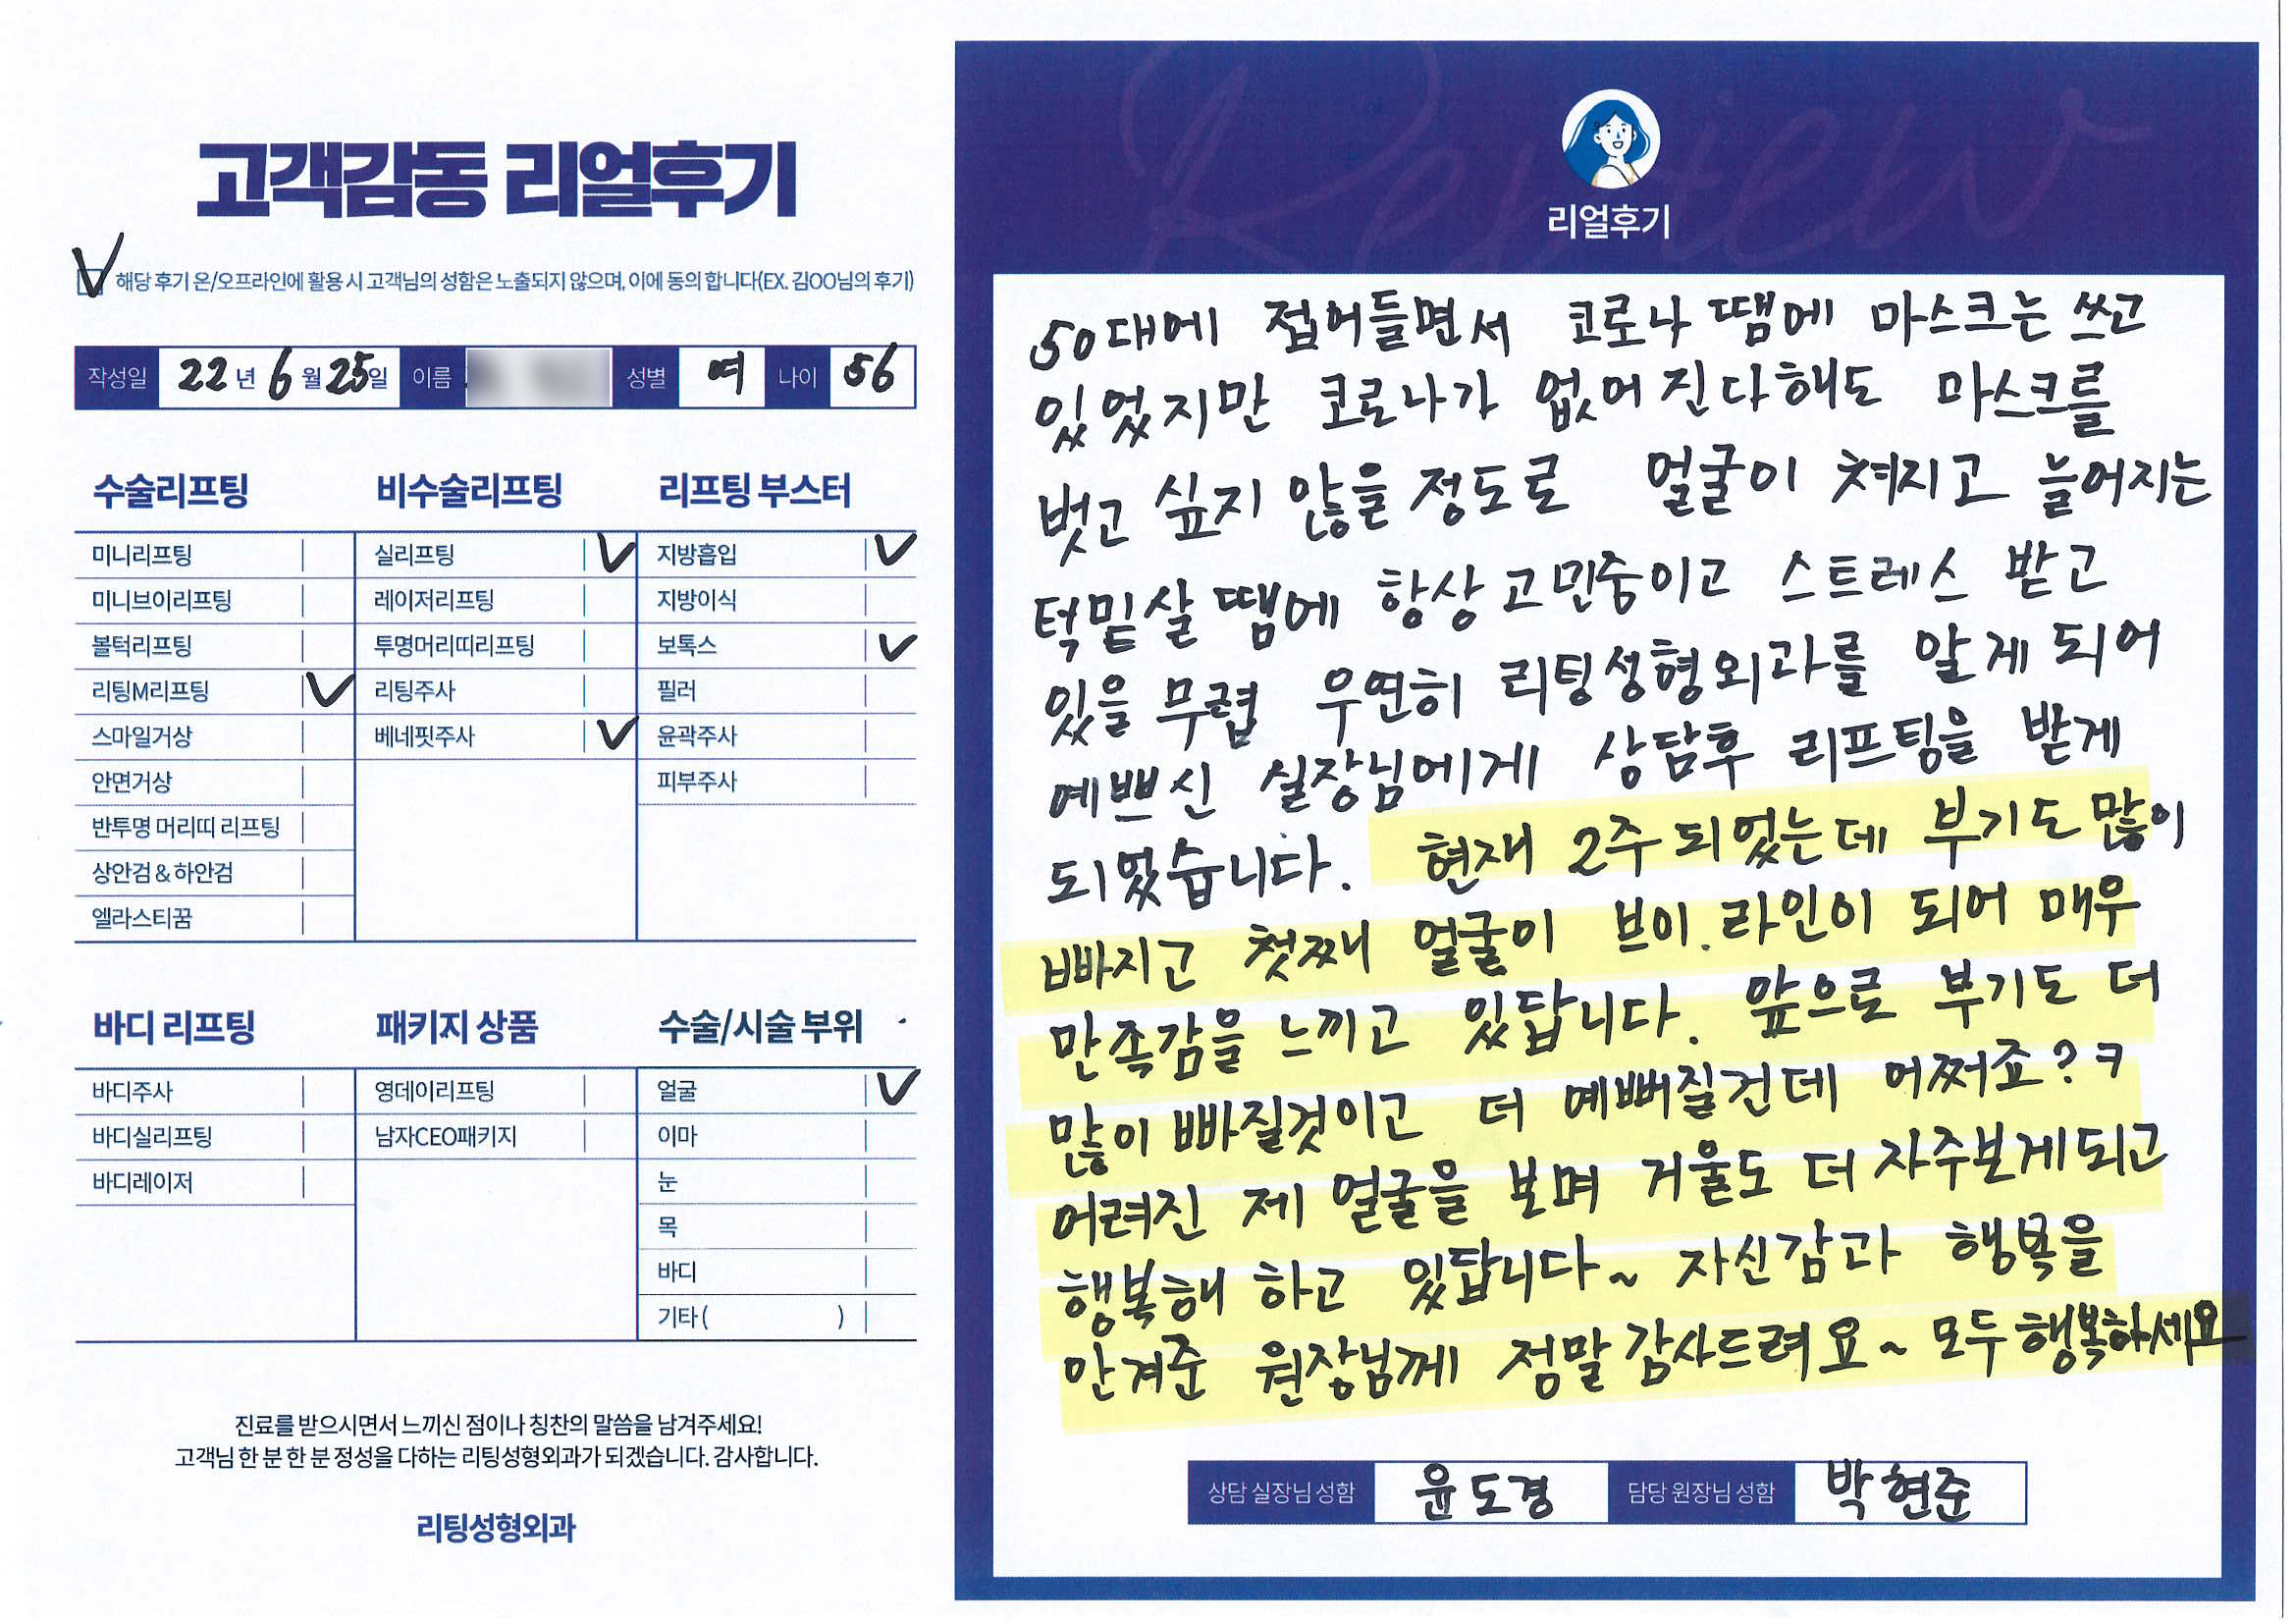 고객감동 리얼후기
해당 후기 온/오프라인에 활용 시 고객님의 성함은 노출되지 않으며, 이에 동의 합니다(EX. 김OO님의 후기)
작성일 22년 6월 25일 이름 성별 여 나이 56
수술리프팅
미니리프팅
미니브이리프팅
볼턱리프팅
리팅M리프팅 ✓
스마일거상
안면거상
반투명 머리띠 리프팅
상안검 & 하안검
엘라스티꿈
비수술리프팅
실리프팅 ✓
레이저리프팅
투명머리띠리프팅
리팅주사
베네핏주사 ✓
리프팅 부스터
지방흡입 ✓
지방이식
보톡스 ✓
필러
윤곽주사
피부주사
바디 리프팅
바디주사
바디실리프팅
바디레이저
패키지 상품
영데이리프팅
남자CEO패키지
수술/시술 부위
얼굴 ✓
이마
눈
목
바디
기타 ( )
진료를 받으시면서 느끼신 점이나 칭찬의 말씀을 남겨주세요!
고객님 한 분 한 분 정성을 다하는 리팅성형외과가 되겠습니다. 감사합니다.
리팅성형외과
Review
리얼후기
50대에 접어들면서 코로나 땜에 마스크는 쓰고
있었지만 코로나가 없어진다해도 마스크를
벗고 싶지 않을 정도로 얼굴이 쳐지고 늘어지는
턱밑살 땜에 항상 고민중이고 스트레스 받고
있을 무렵 우연히 리팅성형외과를 알게 되어
예쁘신 실장님에게 상담후 리프팅을 받게
되었습니다. 현재 2주 되었는데 부기도 많이
빠지고 첫째 얼굴이 브이.라인이 되어 매우
만족감을 느끼고 있답니다. 앞으로 부기도 더
많이 빠질것이고 더 예뻐질건데 어쩌죠? ㅋ
어려진 제 얼굴을 보며 거울도 더 자주보게되고
행복해 하고 있답니다~ 자신감과 행복을
안겨준 원장님께 정말 감사드려요~ 모두 행복하세요
상담 실장님 성함 윤도경 담당 원장님 성함 박현준